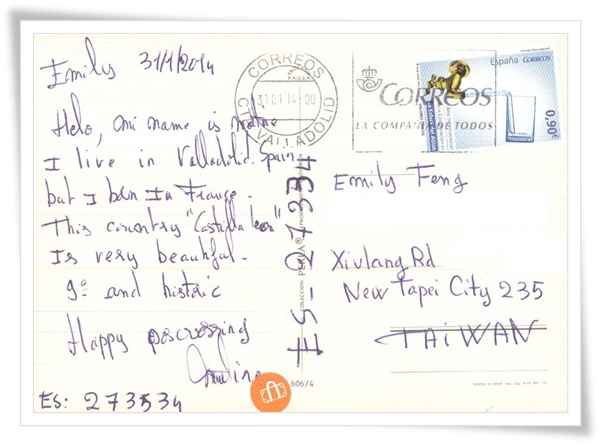 Emily 31/1/2014
Helo, mi name is
I live in Valladolid. Spain
but I born In France.
This country "Castilla leon"
Is very beautiful.
9º and historic
Happy poscrossing
ES: 273534
CORREOS
31 01 14-00
VALLADOLID
CORREOS
LA COMPAÑIA DE TODOS
España CORREOS
0,90€
ES-27334
COLECCION PERLA®
606/4
Emily Feng
Xiulang Rd
New Taipei City 235
TAIWAN